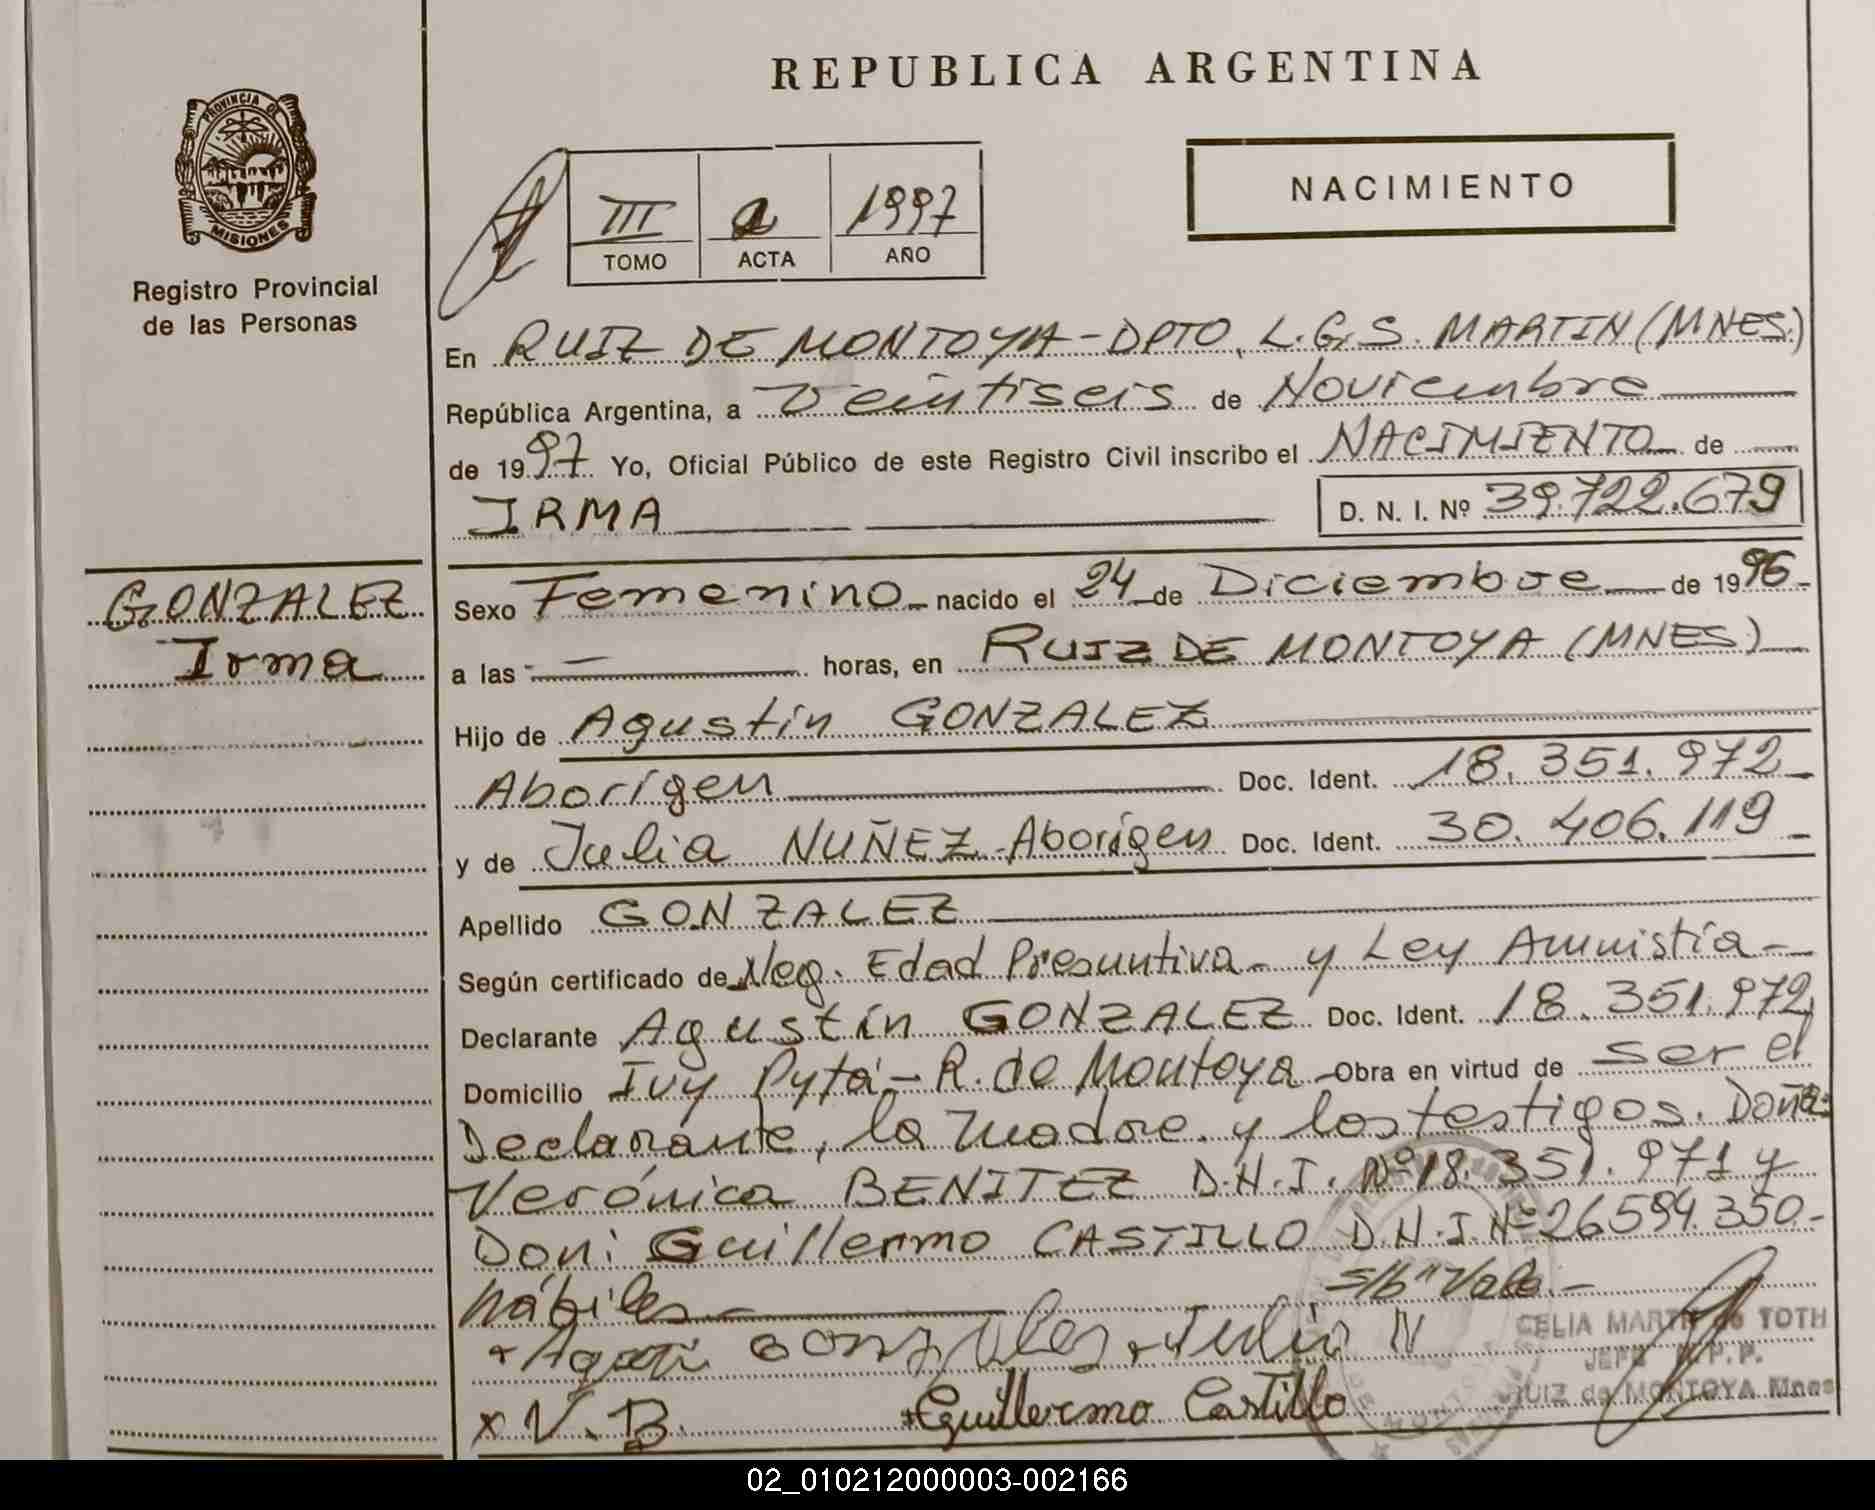 REPUBLICA ARGENTINA
PROVINCIA DE
MISIONES
Registro Provincial
de las Personas
III 1997
TOMO ACTA AÑO
NACIMIENTO
En RUIZ DE MONTOYA-DPTO. L.G.S. MARTIN (MNES.)
República Argentina, a Veintiseis de Noviembre
de 1997 Yo, Oficial Público de este Registro Civil inscribo el NACIMIENTO de
IRMA D. N. I. Nº 39.722.679
GONZALEZ
Irma
Sexo Femenino nacido el 24 de Diciembre de 1996
a las — horas, en RUIZ DE MONTOYA (MNES)
Hijo de Agustín GONZALEZ
Aborígen Doc. Ident. 18.351.972
y de Julia NUÑEZ-Aborígen Doc. Ident. 30.406.119
Apellido GONZALEZ
Según certificado de Neg. Edad Presuntiva y Ley Amnistía
Declarante Agustín GONZALEZ Doc. Ident. 18.351.972
Domicilio Ivy Pytá - R. de Montoya Obra en virtud de ser el
Declarante, la madre y los testigos. Doña:
Verónica BENITEZ D.N.I. Nº 18.351.971 y
Don: Guillermo CASTILLO D.N.I. Nº 26594.350-
hábiles S/b "Vale.-
+ Gonzales + Julia N
x V. B. + Guillermo Castillo
CELIA MARTA de TOTH
JEFE R.P.P.
RUIZ de MONTOYA Mnes
02_010212000003-002166